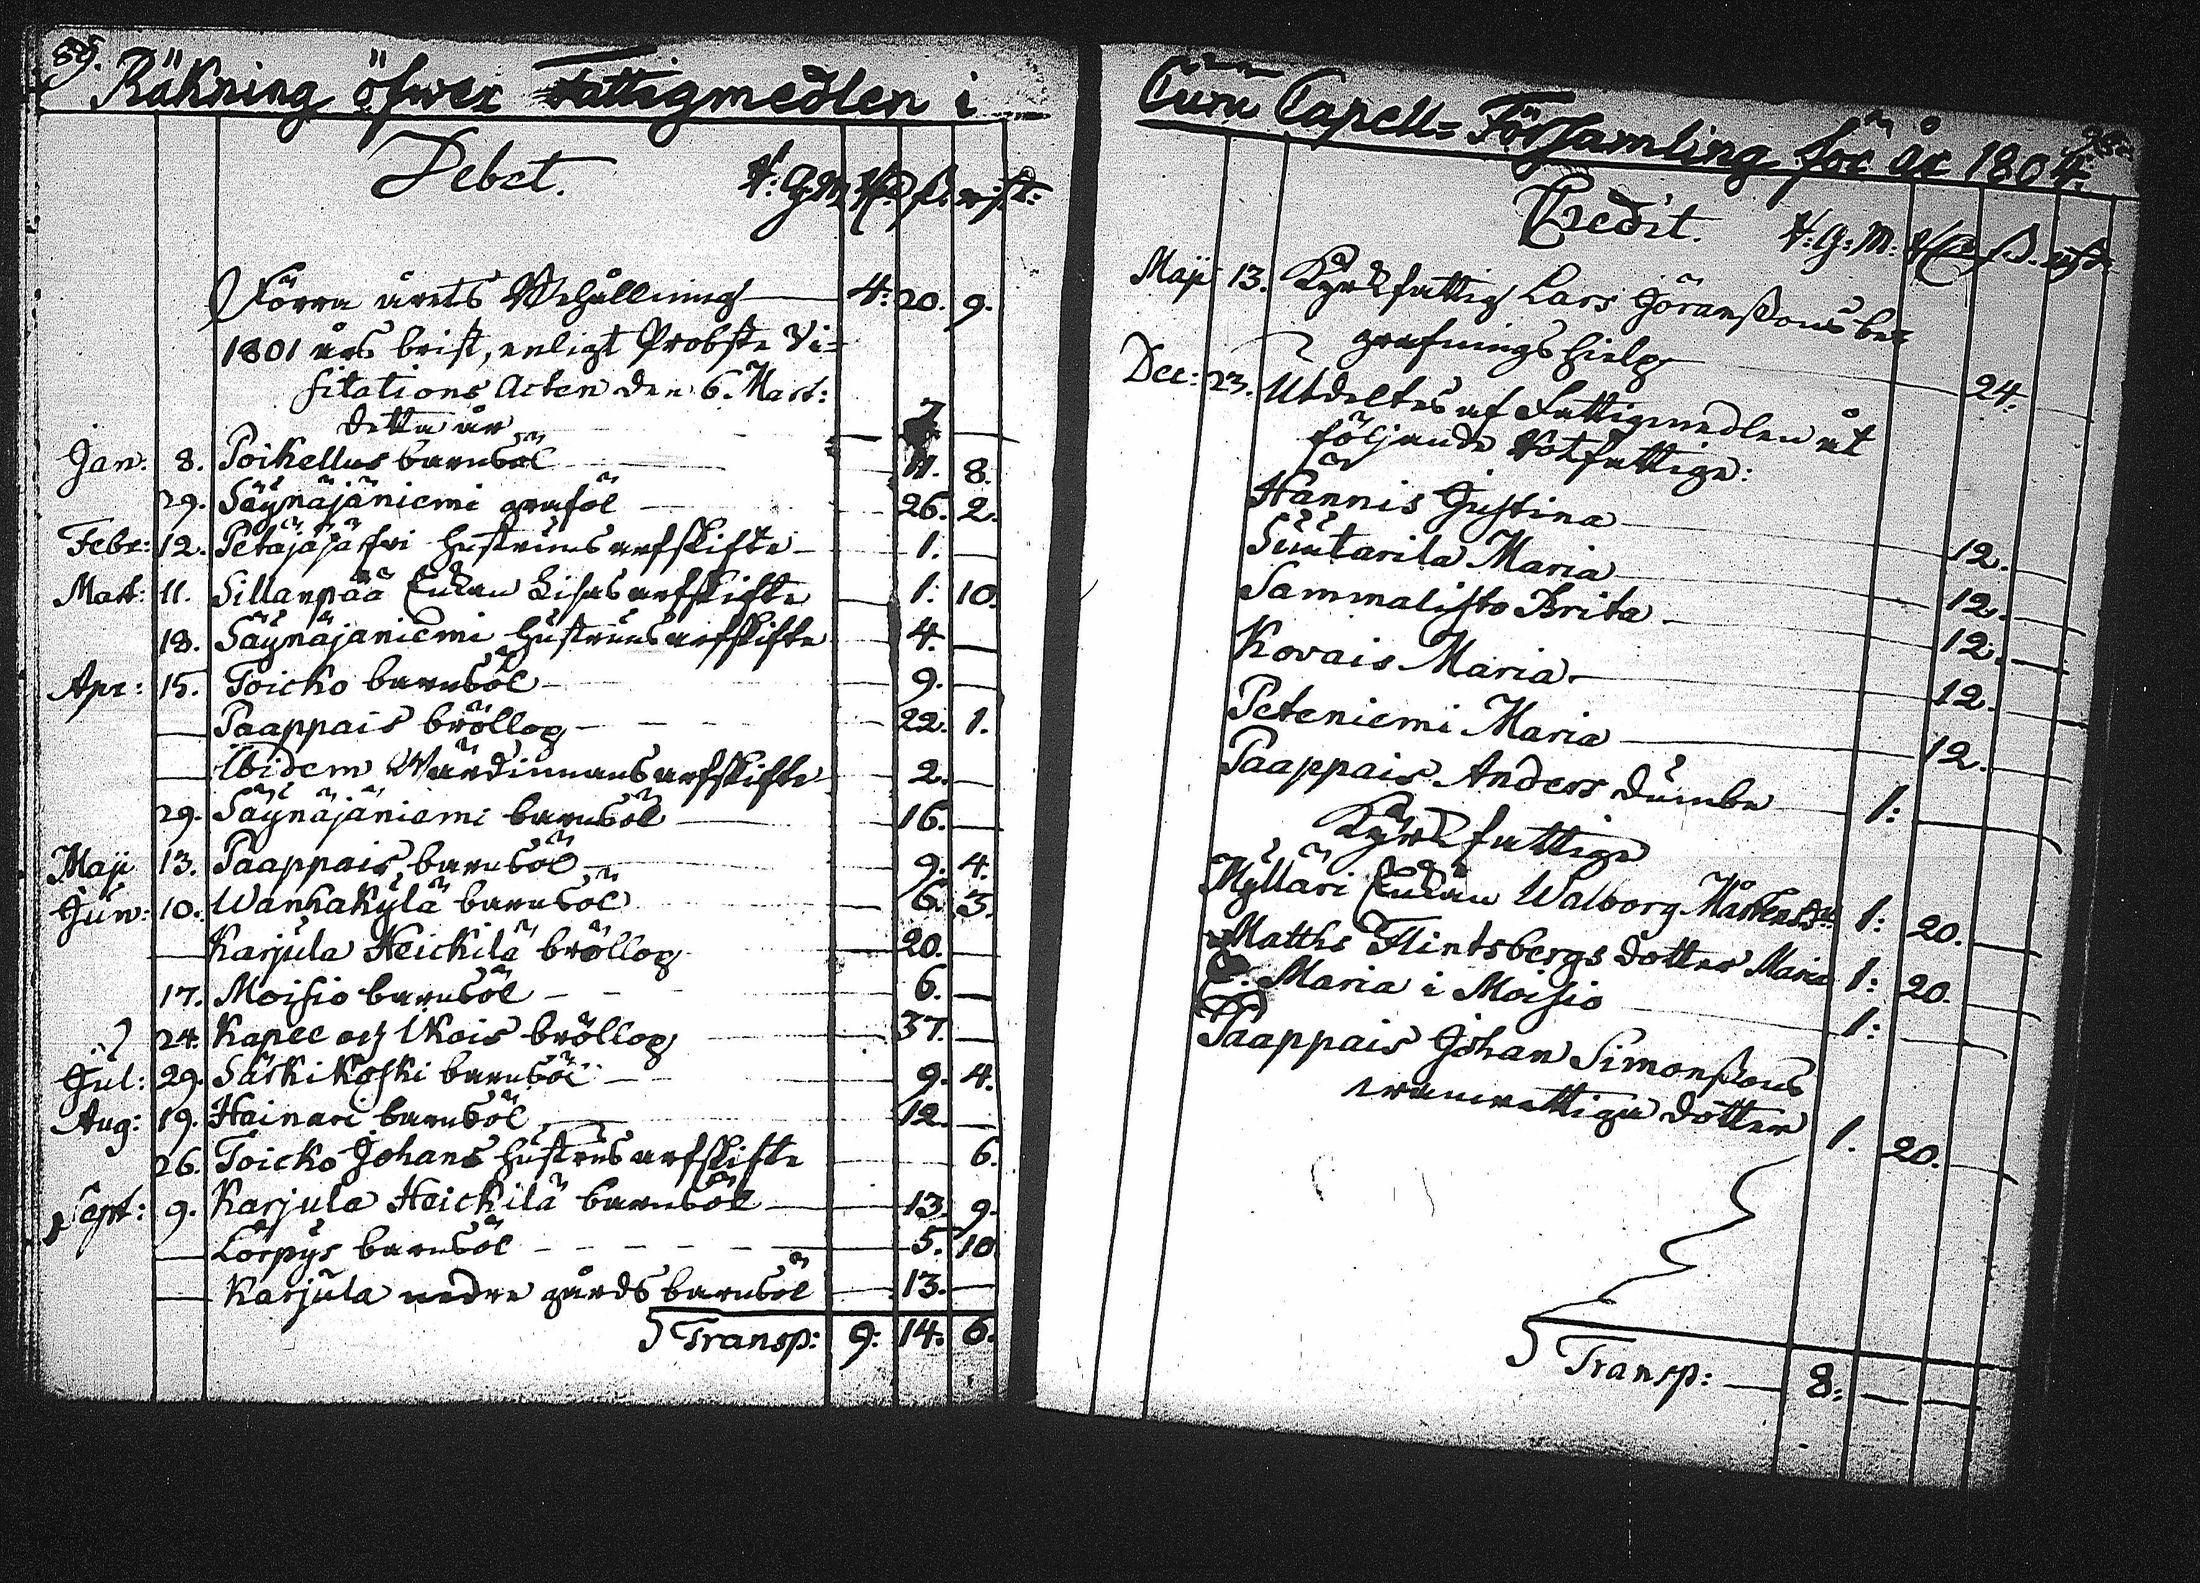 89.
Räkning öfwer Fattigmedlen i
Debet.
Förra årets Behållning 4: 20. 9.
1801 års brist, enligt Probste Vi=
sitations Acten den 6. Mart:
detta år — 7 —
Jan: 8. Poikellus barnsöl — 11. 8.
29. Säynäjäniemi graföl — 26. 2.
Febr: 12. Petäjäjärfvi hustruns arfskifte — 1. —
Mart: 11. Sillanpää Enkan Lisas arfskifte — 1: 10.
18. Säynäjäniemi hustruns arfskifte — 4. —
Apr: 15. Toicko barnsöl — 9. —
— Paappais bröllop — 22. 1.
— Ibidem Wärdinnans arfskifte — 2. —
29. Säynäjäniemi barnsöl — 16. —
Maji 13. Paappais barnsöl — 9. 4.
Jun: 10. Wanhakylä barnsöl — 6. 3.
— Karjula Heickilä bröllop — 20. —
17. Moisio barnsöl — 6. —
24. Kapee och Ikois bröllop — 37. —
Jul: 29. Särkikoski barnsöl — 9. 4.
Aug: 19. Hainari barnsöl — 12. —
26. Toicko Johans hustrus arfskifte — 6.
Sept: 9. Karjula Heickilä barnsöl — 13. 9.
— Lörpys barnsöl — 5. 10
— Karjula nedre gårds barnsöl — 13. —
Transp: 9: 14: 6.
Curu Capell=Församling för år 1804.
Credit.
Maji 13. Kyrkfattig Lars Göranssons be=
grafnings hielp — 24: —
Dec: 23. Utdeltes af Fattigmedlen åt
följande Rotfattige:
Hannis Justina — 12. —
Suutarila Maria — 12. —
Sammalisto Brita — 12. —
Kovais Maria — 12. —
Peteniemi Maria — 12. —
Paappais Anders dumbe — 1: —
Kyrkfattige
Mylläri Enkan Walborg 1: 20. —
Matths Flintsbergs dotter Maria 1: 20. —
Maria i Moisio — 1: —
Paappais Johan Simonssons
wanwettiga dotter 1. 20. —
Transp: — 8: —